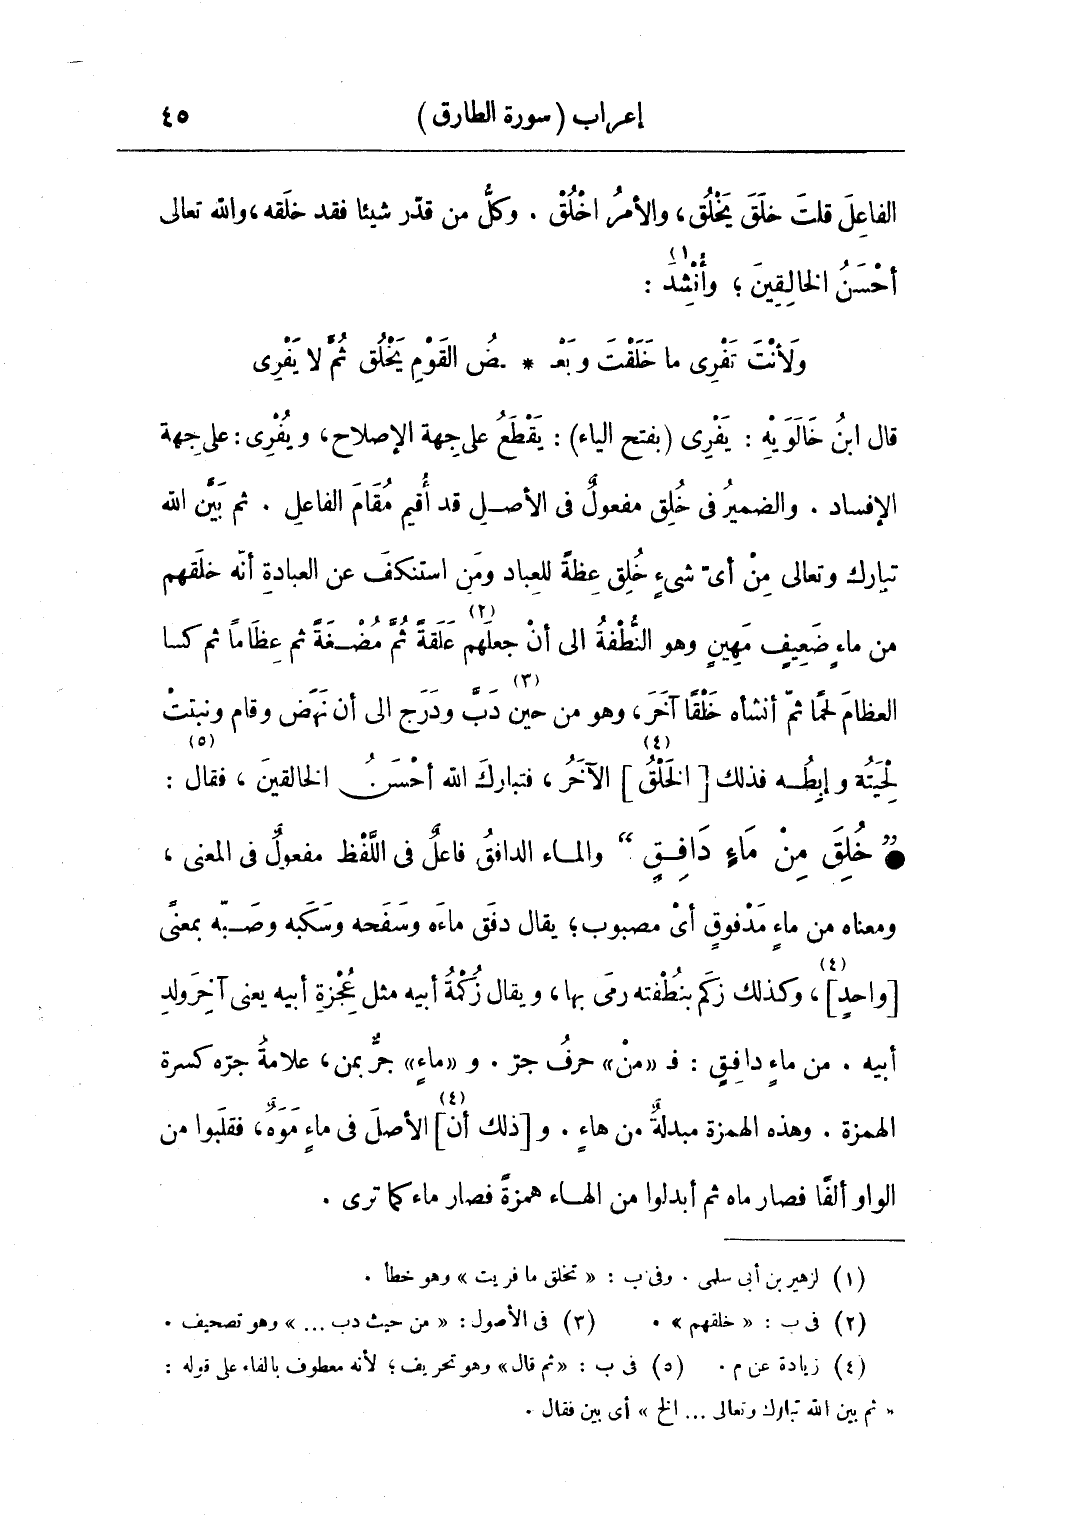 إعراب (سورة الطارق) ٤٥
الفاعِلَ قلتَ خلَقَ يَخْلُق، والأمرُ اخْلُقْ . وكلُّ من قدّر شيئا فقد خلَقه، والله تعالى
أحْسَنُ الخالِقِينَ ؛ وأُنْشِدَ (١) :
ولَأنْتَ تَفْرِى ما خَلَقْتَ وبَعْـ * ـضُ القَوْمِ يَخْلُق ثُمَّ لا يَفْرِى
قال ابنُ خَالَوَيْهِ : يَفْرِى (بفتح الياء) : يَقْطَعُ على جِهة الإصلاح، ويُفْرِى : على جِهة
الإفساد . والضميرُ فى خُلِق مفعولٌ فى الأصـلِ قد أُقيم مُقَامَ الفاعلِ . ثم بَيَّن الله
تبارك وتعالى مِنْ أىّ شىءٍ خُلِق عِظةً للعِباد ومَنِ استنكفَ عن العبادةِ أنّه خلَقهم
من ماءٍ ضَعِيفٍ مَهِينٍ وهو النُّطْفةُ الى أنْ جعلَهم (٢) عَلَقةً ثُمَّ مُضْـغَةً ثم عِظَاماً ثم كسا
العظامَ لحمًا ثمّ أنشأه خَلْقًا آخَرَ، وهو من حين (٣) دَبَّ ودَرَج الى أن نَهَض وقام ونبتتْ
لِحْيَتُه وإبِطُـه فذلك [الخَلْقُ] (٤) الآخَرُ ، فتباركَ الله أحْسَنُ الخالقينَ ، فقال (٥) :
● ”خُلِقَ مِنْ مَاءٍ دَافِـقٍ“ والمـاء الدافقُ فاعلٌ فى اللَّفْظ مفعولٌ فى المعنى ،
ومعناه من ماءٍ مَدْفوقٍ أىْ مصبوب؛ يقال دفَق ماءَه وسَفَحه وسَكَبه وصَـبّه بمعنًى
[واحدٍ] (٤)، وكذلك زكَم بنُطْفته رمَى بها، ويقال زُكْمةُ أبيه مثل عُجْزةِ أبيه يعنى آخِرَ ولدِ
أبيه . من ماءٍ دافِـقٍ : فـ «منْ» حرفُ جرّ . و «ماءٍ» جرٌّ بمن، علامةُ جرّه كسرة
الهمزة . وهذه الهمزة مبدلةٌ من هاءٍ . و [ذلك أن] (٤) الأصلَ فى ماءٍ مَوَهٌ، فقلَبوا من
الواو ألفًا فصار ماه ثم أبدلوا من الهـاء همزةً فصار ماء كما ترى .
(١) لزهير بن أبى سلمى . وفى ب : «تخلق ما فريت» وهو خطأ .
(٢) فى ب : « خلقهم » . (٣) فى الأصول : « من حيث دب ... » وهو تصحيف .
(٤) زيادة عن م . (٥) فى ب : «ثم قال» وهو تحريف؛ لأنه معطوف بالفاء على قوله :
« ثم بين الله تبارك وتعالى ... الخ » أى بين فقال .